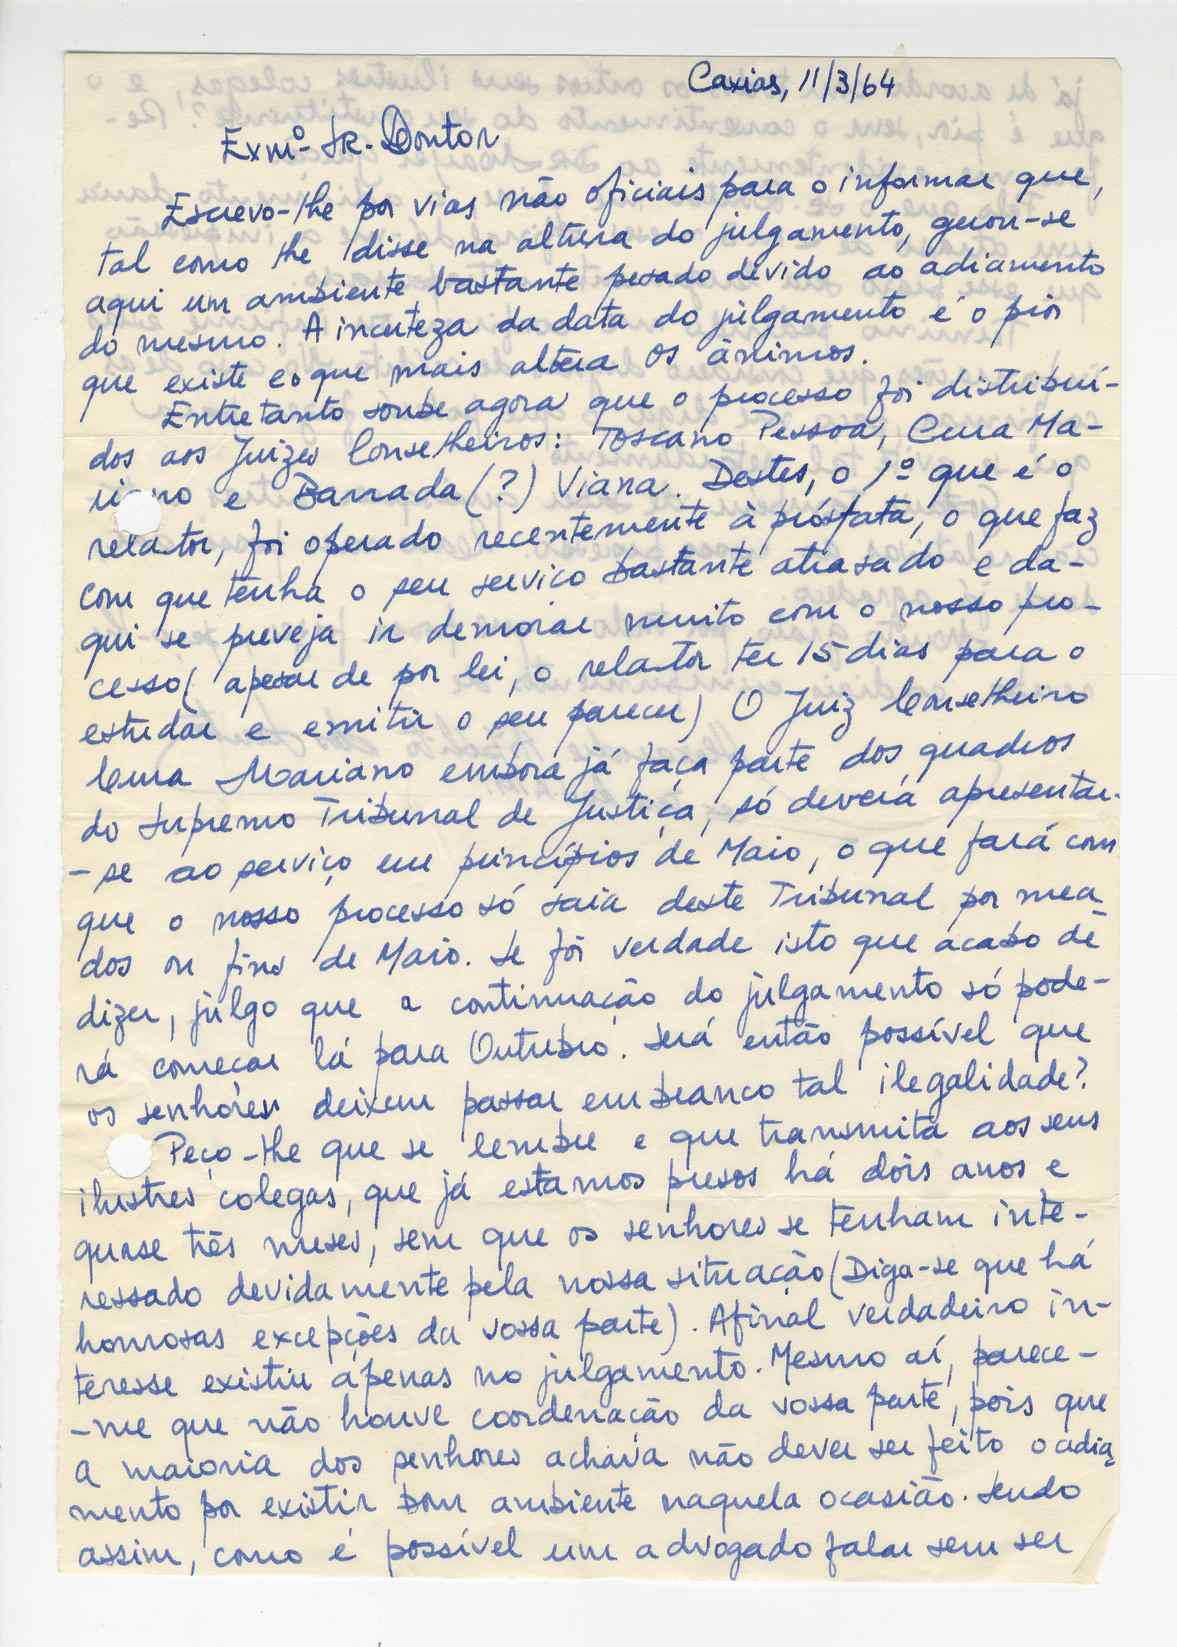 Caxias, 11/3/64
Exmº Sr. Doutor
Escrevo-lhe por vias não oficiais para o informar que,
tal como lhe disse na altura do julgamento, gerou-se
aqui um ambiente bastante pesado devido ao adiamento
do mesmo. A incerteza da data do julgamento é o pior
que existe e o que mais altera os ânimos.
Entretanto soube agora que o processo foi distribuí-
dos aos Juizes Conselheiros: Toscano Pessoa, Cura Ma-
riano e Barrada (?) Viana. Destes, o 1º que é o
relator, foi operado recentemente à próstata, o que faz
com que tenha o seu serviço bastante atrasado e da-
qui se preveja ir demorar muito com o nosso pro-
cesso (apesar de por lei, o relator ter 15 dias para o
estudar e emitir o seu parecer) O Juiz Conselheiro
Cura Mariano embora já faça parte dos quadros
do Supremo Tribunal de Justiça, só deverá apresentar-
-se ao serviço em princípios de Maio, o que fará com
que o nosso processo só saia deste Tribunal por mea
dos ou fins de Maio. Se fôr verdade isto que acabo de
dizer, julgo que a continuação do julgamento só pode-
rá começar lá para Outubro. Será então possível que
os senhores deixem passar em branco tal ilegalidade?
Peço-lhe que se lembre e que transmita aos seus
ilustres colegas, que já estamos presos há dois anos e
quase três meses, sem que os senhores se tenham inte-
ressado devidamente pela nossa situação (Diga-se que há
honrosas excepções da vossa parte). Afinal verdadeiro in-
teresse existiu apenas no julgamento. Mesmo aí, parece-
-me que não houve coordenação da vossa parte, pois que
a maioria dos senhores achava não dever ser feito o adia
mento por existir bom ambiente naquela ocasião. Sendo
assim, como é possível um advogado falar sem ser